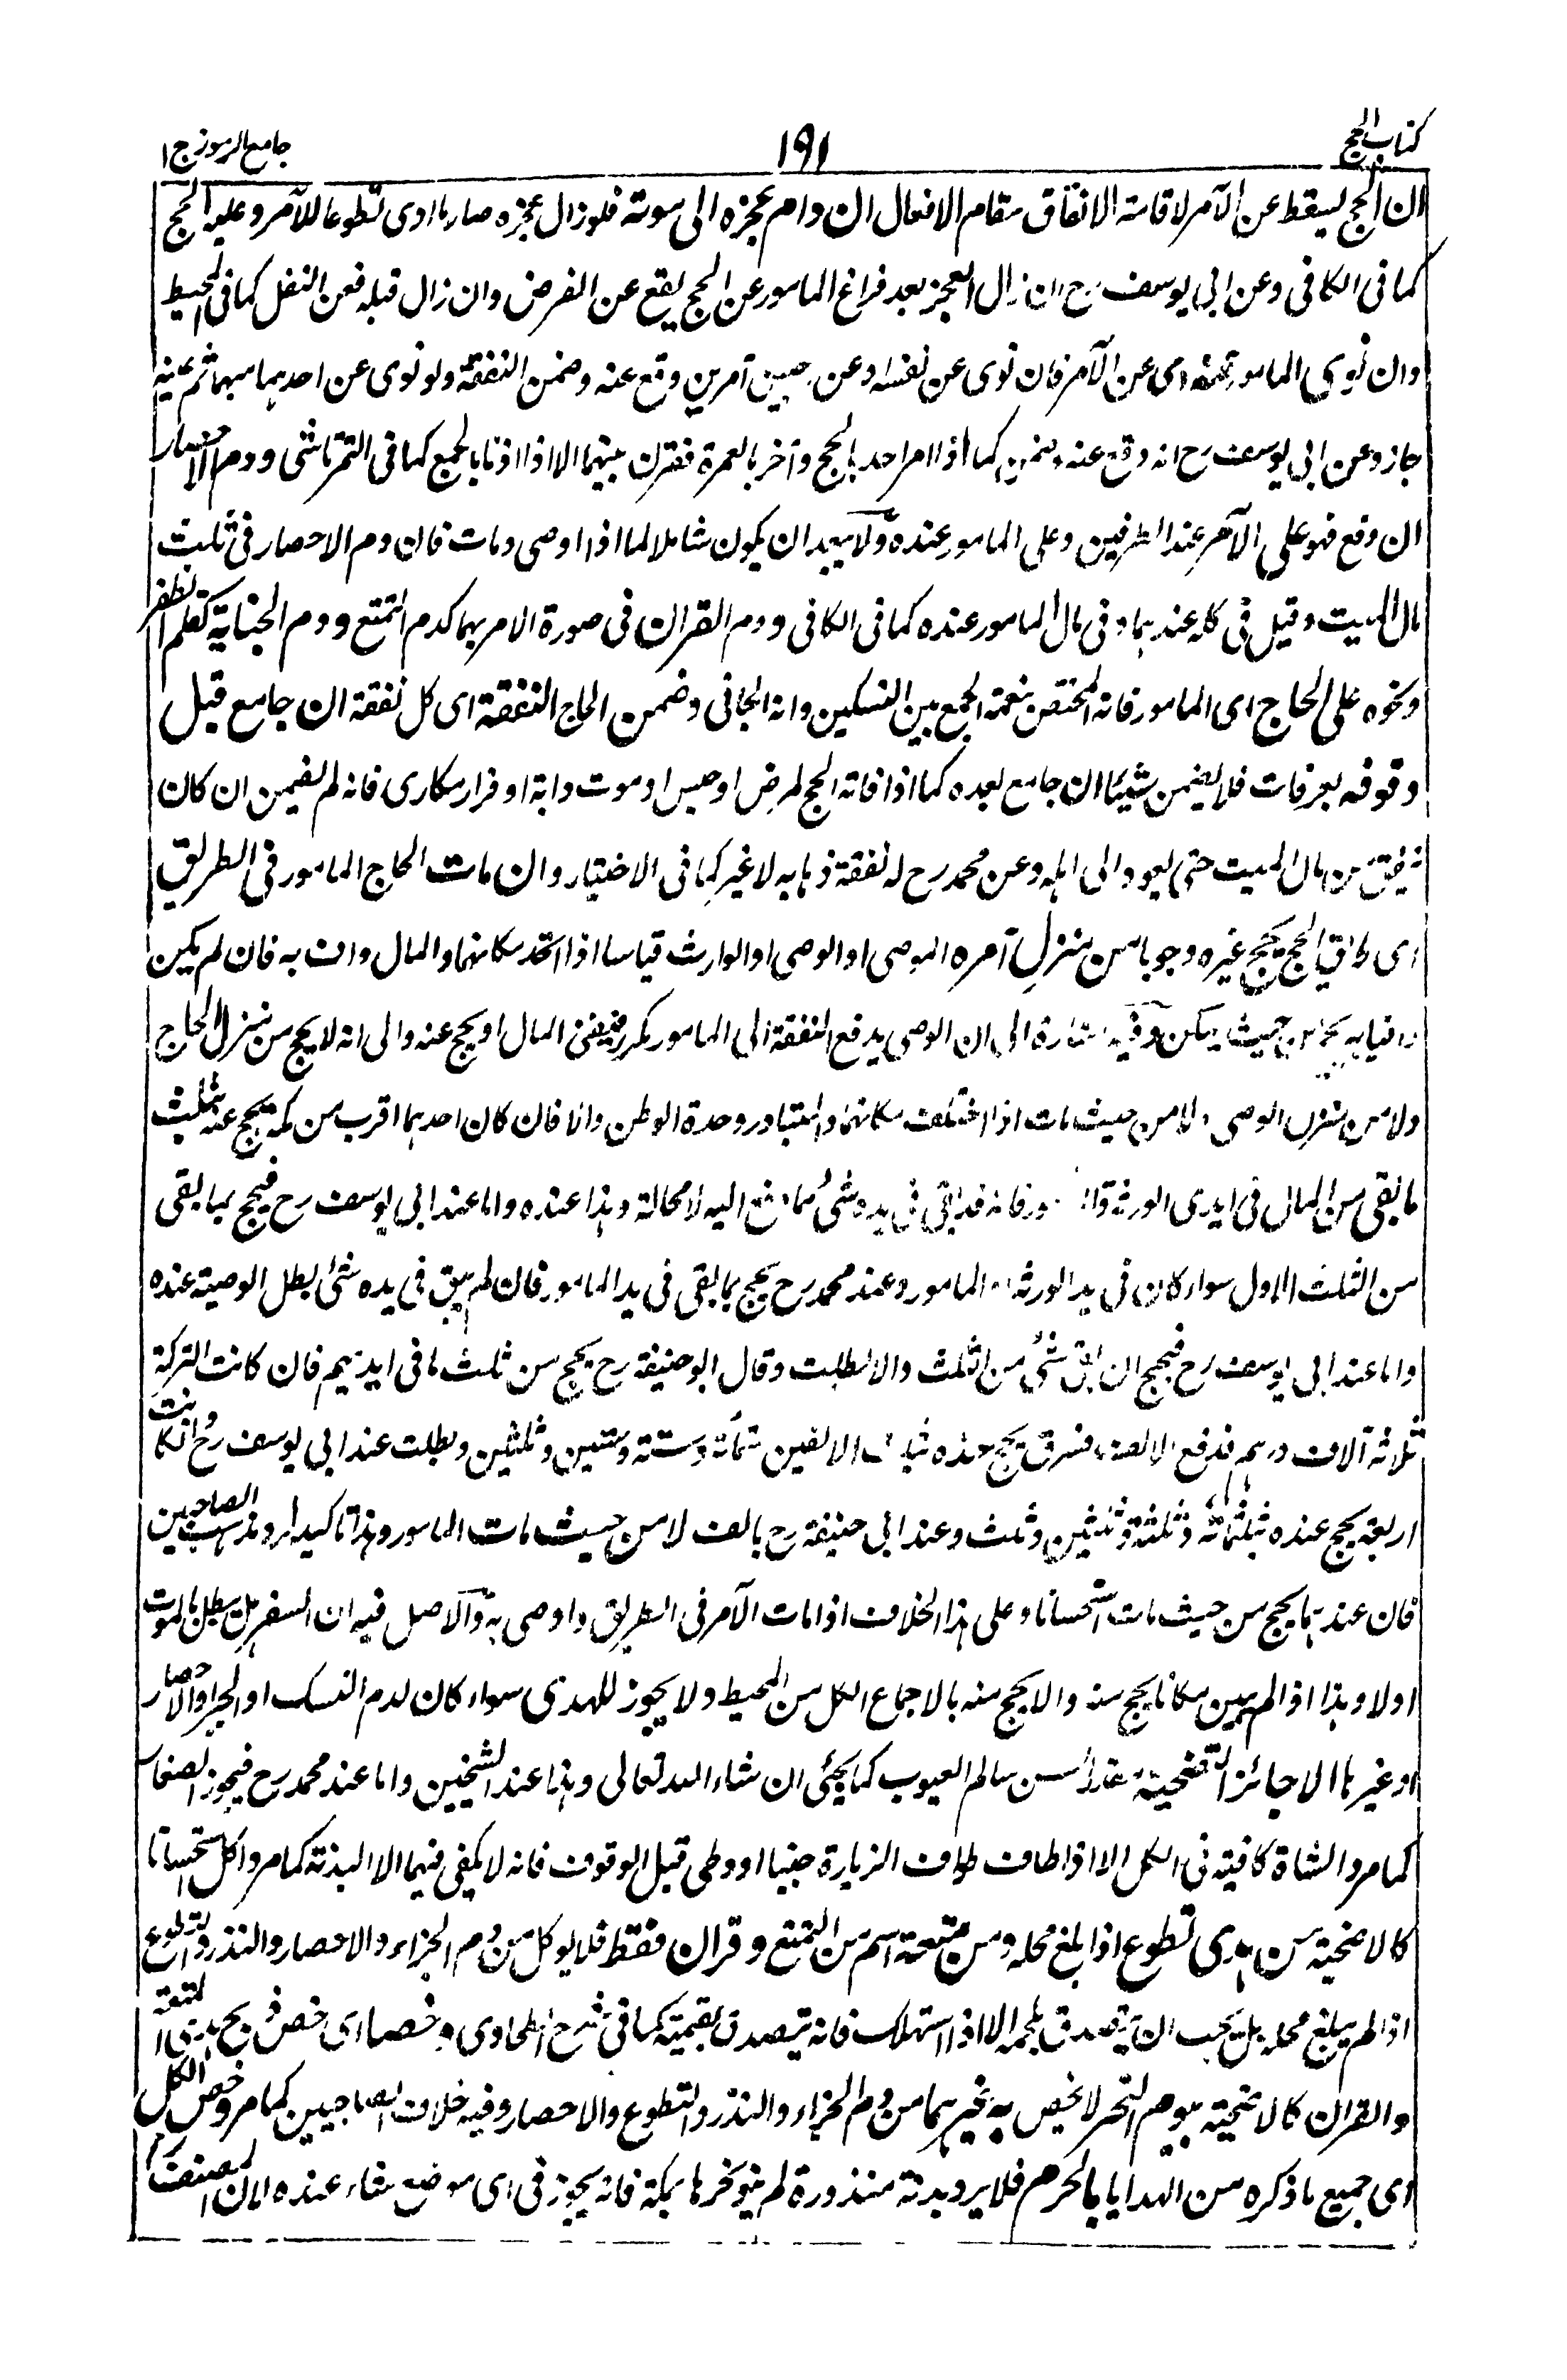 كتاب الحج
١٩١
جامع الرموز ج ا
ان الحج يسقط عن الآمر لاقامة الانفاق مقام الافعال ان دام عجزه الى موته فلو زال عجزه صار ما ادى تطوعا للآمر وعليه الحج
كما فى الكافى وعن ابى يوسف رح ان زال العجز بعد فراغ المامور عن الحج يقع عن الفرض وان زال قبله فعن النفل كما فى المحيط
وان نوى المامور عنه اى عن الآمر فان نوى عن نفسه او عن آمرين وقع عنه وضمن النفقة ولو نوى عن احدهما مبهما ثم عينه
جاز وعن ابى يوسف رح انه وقع عنه كما اذا امر احد بالحج وآخر بالعمرة فقرن بينهما الا اذا اذنا بالجمع كما فى التمرتاشى ودم الاحصار
ان وقع فهو على الآمر عند الطرفين وعلى المامور عنده ولا يبعد ان يكون شاملا لما اذا اوصى ومات فان دم الاحصار فى ثلث
مال الميت وقيل فى كله عندهما وفى مال المامور عنده كما فى الكافى ودم القران فى صورة الامر بهما كدم التمتع ودم الجناية كقلم الظفر
ونحوه على الحاج اى المامور فانه المختص بنعمة الجمع بين النسكين وانه الجانى وضمن الحاج النفقة اى كل نفقة ان جامع قبل
وقوفه بعرفات فلا يضمن شيئا ان جامع بعده كما اذا فاته الحج لمرض او حبس او موت دابة او فرار مكارى فانه لم يضمن ان كان
نفقته من مال الميت حتى يعود الى اهله وعن محمد رح له نفقة ذهابه لا غير كما فى الاختيار وان مات الحاج المامور فى الطريق
اى طريق الحج يحج غيره وجوبا من منزل آمره الموصى او الوصى او الوارث قياسا اذا اتحد مكانهما والمال واف به فان لم يكن
وافيا به يحج من حيث يمكن وفيه اشارة الى ان الوصى يدفع النفقة الى المامور مكررا فيفنى المال او يحج عنه والى انه لا يحج من منزل الحاج
ولا من منزل الوصى ولا من حيث مات اذا اختلف مكانهما والمتبادر وحدة الوطن واما فان كان احدهما اقرب من مكة يحج عنه بثلث
ما بقى من المال فى ايدى الورثة فانه قد ابقى فى يده شئ مما دفع اليه لا محالة وهذا عنده واما عند ابى يوسف رح فيحج بما بقى
من الثلث الاول سواء كان فى يد الورثة او المامور وعند محمد رح يحج بما بقى فى يد المامور فان لم يبق فى يده شئ بطل الوصية عنده
واما عند ابى يوسف رح فيحج ان بقى شئ من الثلث والا بطلت وقال ابو حنيفة رح يحج من ثلث ما فى ايديهم فان كانت التركة
ثلاثة آلاف درهم فدفع الالف فسرق يحج عنده بثلث الالفين ستمائة وستة وستين وثلثين وبطلت عند ابى يوسف رح وان كانت
اربعة يحج عنده بثلثمائة وثلثة وثلثين وثلث وعند ابى حنيفة رح بالف لا من حيث مات المامور وهذا تاكيد لرد مذهب الصاحبين
فان عندهما يحج من حيث مات استحسانا وعلى هذا الخلاف اذا مات الآمر فى الطريق واوصى به والاصل فيه ان السفر هل يبطل بالموت
اولا وهذا اذا لم يبين مكانا يحج منه والا يحج منه بالاجماع الكل من المحيط ولا يجوز للهدى سواء كان لدم النسك او الجبر او الاحصار
او غيرها الا جائز التضحية سن سالم العيوب كما يجئ ان شاء الله تعالى وهذا عند الشيخين واما عند محمد رح فيجوز الصغار
كما مر والشاة كافية فى الكل الا اذا طاف طواف الزيارة جنبا او وطى قبل الوقوف فانه لا يكفى فيهما الا البدنة كما مر واكل استحسانا
كالاضحية من هدى تطوع اذا بلغ محله ومن متعة اسم من التمتع وقران فقط فلا يوكل من دم الجزاء والاحصار والنذر والتطوع
اذا لم يبلغ محله بل يجب ان يتصدق بلحمه الا اذا استهلك فانه يتصدق بقيمته كما فى شرح الطحاوى وخصا اى خص ذبح هدى المتعة
والقران كالاضحية بيوم النحر لا يخص به غيرهما من دم الجزاء والنذر والتطوع والاحصار وفيه خلاف الصاحبين كما مر وخص الكل
اى جميع ما ذكره من الهدايا بالحرم فلا يرد بدنة منذورة لم ينو نحرها بمكة فانه يجوز فى اى موضع شاء عنده المصنف